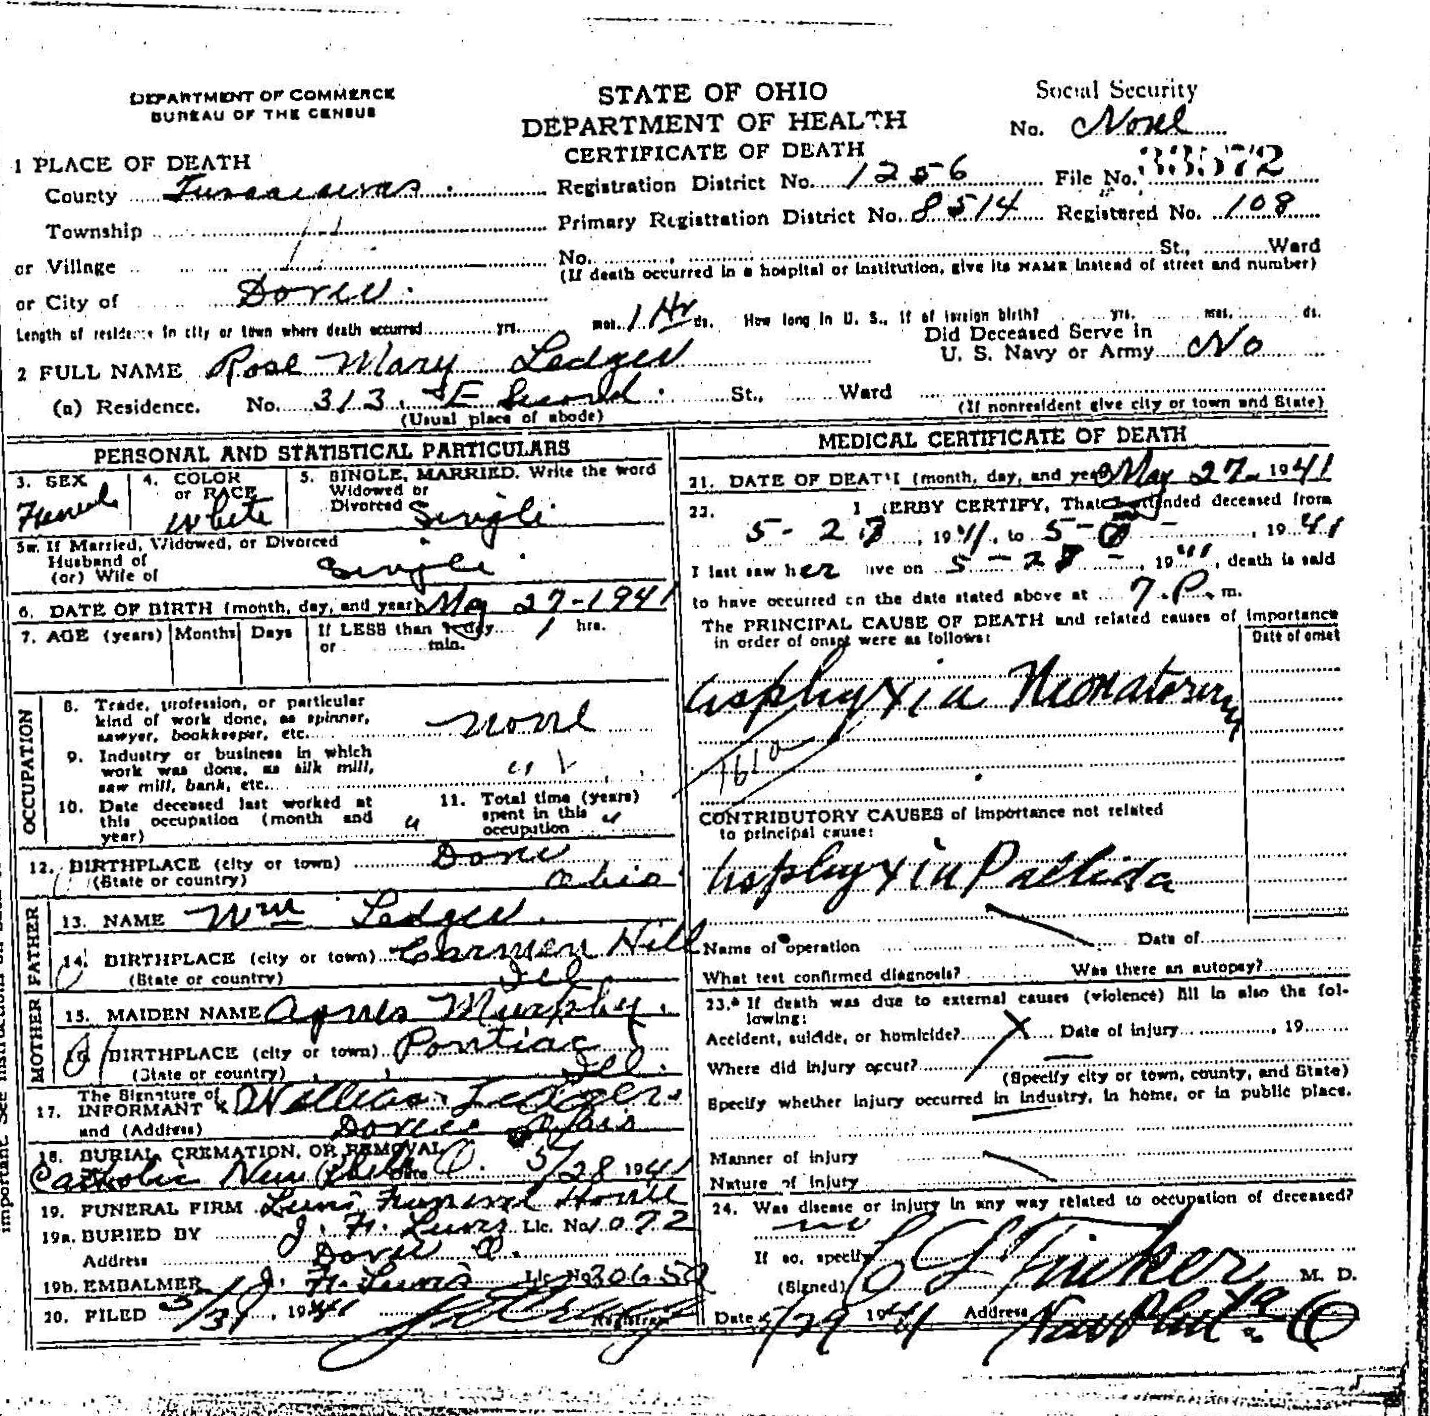 DEPARTMENT OF COMMERCE
BUREAU OF THE CENSUS
STATE OF OHIO
DEPARTMENT OF HEALTH
CERTIFICATE OF DEATH
Social Security
No. None
1 PLACE OF DEATH
County Tuscarawas.
Township
or Village
or City of Dover.
Registration District No. 1256 File No. 33572
Primary Registration District No. 8514 Registered No. 108
No. St., Ward
(If death occurred in a hospital or institution, give its NAME instead of street and number)
Length of residence in city or town where death occurred yrs. mos. 1 Hr ds. How long in U. S., if of foreign birth? yrs. mos. ds.
Did Deceased Serve in
U. S. Navy or Army No
2 FULL NAME Rose Mary Ledger
(a) Residence. No. 313. E Second. St., Ward
(Usual place of abode) (If nonresident give city or town and State)
PERSONAL AND STATISTICAL PARTICULARS
3. SEX Female
4. COLOR or RACE White
5. SINGLE, MARRIED. Write the word
Widowed or
Divorced Single
5a. If Married, Widowed, or Divorced
Husband of
(or) Wife of Single
6. DATE OF BIRTH (month, day, and year) May 27-1941
7. AGE (years) Months Days If LESS than 1 day 1 hrs.
or min.
OCCUPATION
8. Trade, profession, or particular
kind of work done, as spinner,
sawyer, bookkeeper, etc. none
9. Industry or business in which
work was done, as silk mill,
saw mill, bank, etc. "
10. Date deceased last worked at
this occupation (month and
year) "
11. Total time (years)
spent in this
occupation "
12. BIRTHPLACE (city or town) Dover
(State or country) Ohio
FATHER
13. NAME Wm Ledger.
14. BIRTHPLACE (city or town) Carmen Hill
(State or country) Ill
MOTHER
15. MAIDEN NAME Agnes Murphy.
16. BIRTHPLACE (city or town) Pontiac
(State or country) Ill.
17. The Signature of
INFORMANT x William Ledger
and (Address) Dover Ohio
18. BURIAL, CREMATION, OR REMOVAL
Catholic New Phila O. Date 5/28 1941
19. FUNERAL FIRM Lewis Funeral Home
19a. BURIED BY J. H. Lewis Lic. No. 1072
Address Dover O.
19b. EMBALMER J. H. Lewis Lic. No.
20. FILED 5/31, 1941 Registrar
MEDICAL CERTIFICATE OF DEATH
21. DATE OF DEATH (month, day, and year) May 27- 1941
22. I HEREBY CERTIFY, That I attended deceased from
5- 27, 1941, to 5- , 1941
I last saw her alive on 5- 27 -, 1941, death is said
to have occurred on the date stated above at 7.P. m.
The PRINCIPAL CAUSE OF DEATH and related causes of importance
in order of onset were as follows: Date of onset
Asphyxia Neonatorum
CONTRIBUTORY CAUSES of importance not related
to principal cause:
Asphyxia Pallida
Name of operation Date of
What test confirmed diagnosis? Was there an autopsy?
23.* If death was due to external causes (violence) fill in also the fol-
lowing:
Accident, suicide, or homicide? X Date of injury , 19
Where did injury occur?
(Specify city or town, county, and State)
Specify whether injury occurred in industry, in home, or in public place.
Manner of injury
Nature of injury
24. Was disease or injury in any way related to occupation of deceased?
no
If so, specify
(Signed) Tinker M. D.
Date 5/29 1941 Address New Phila O